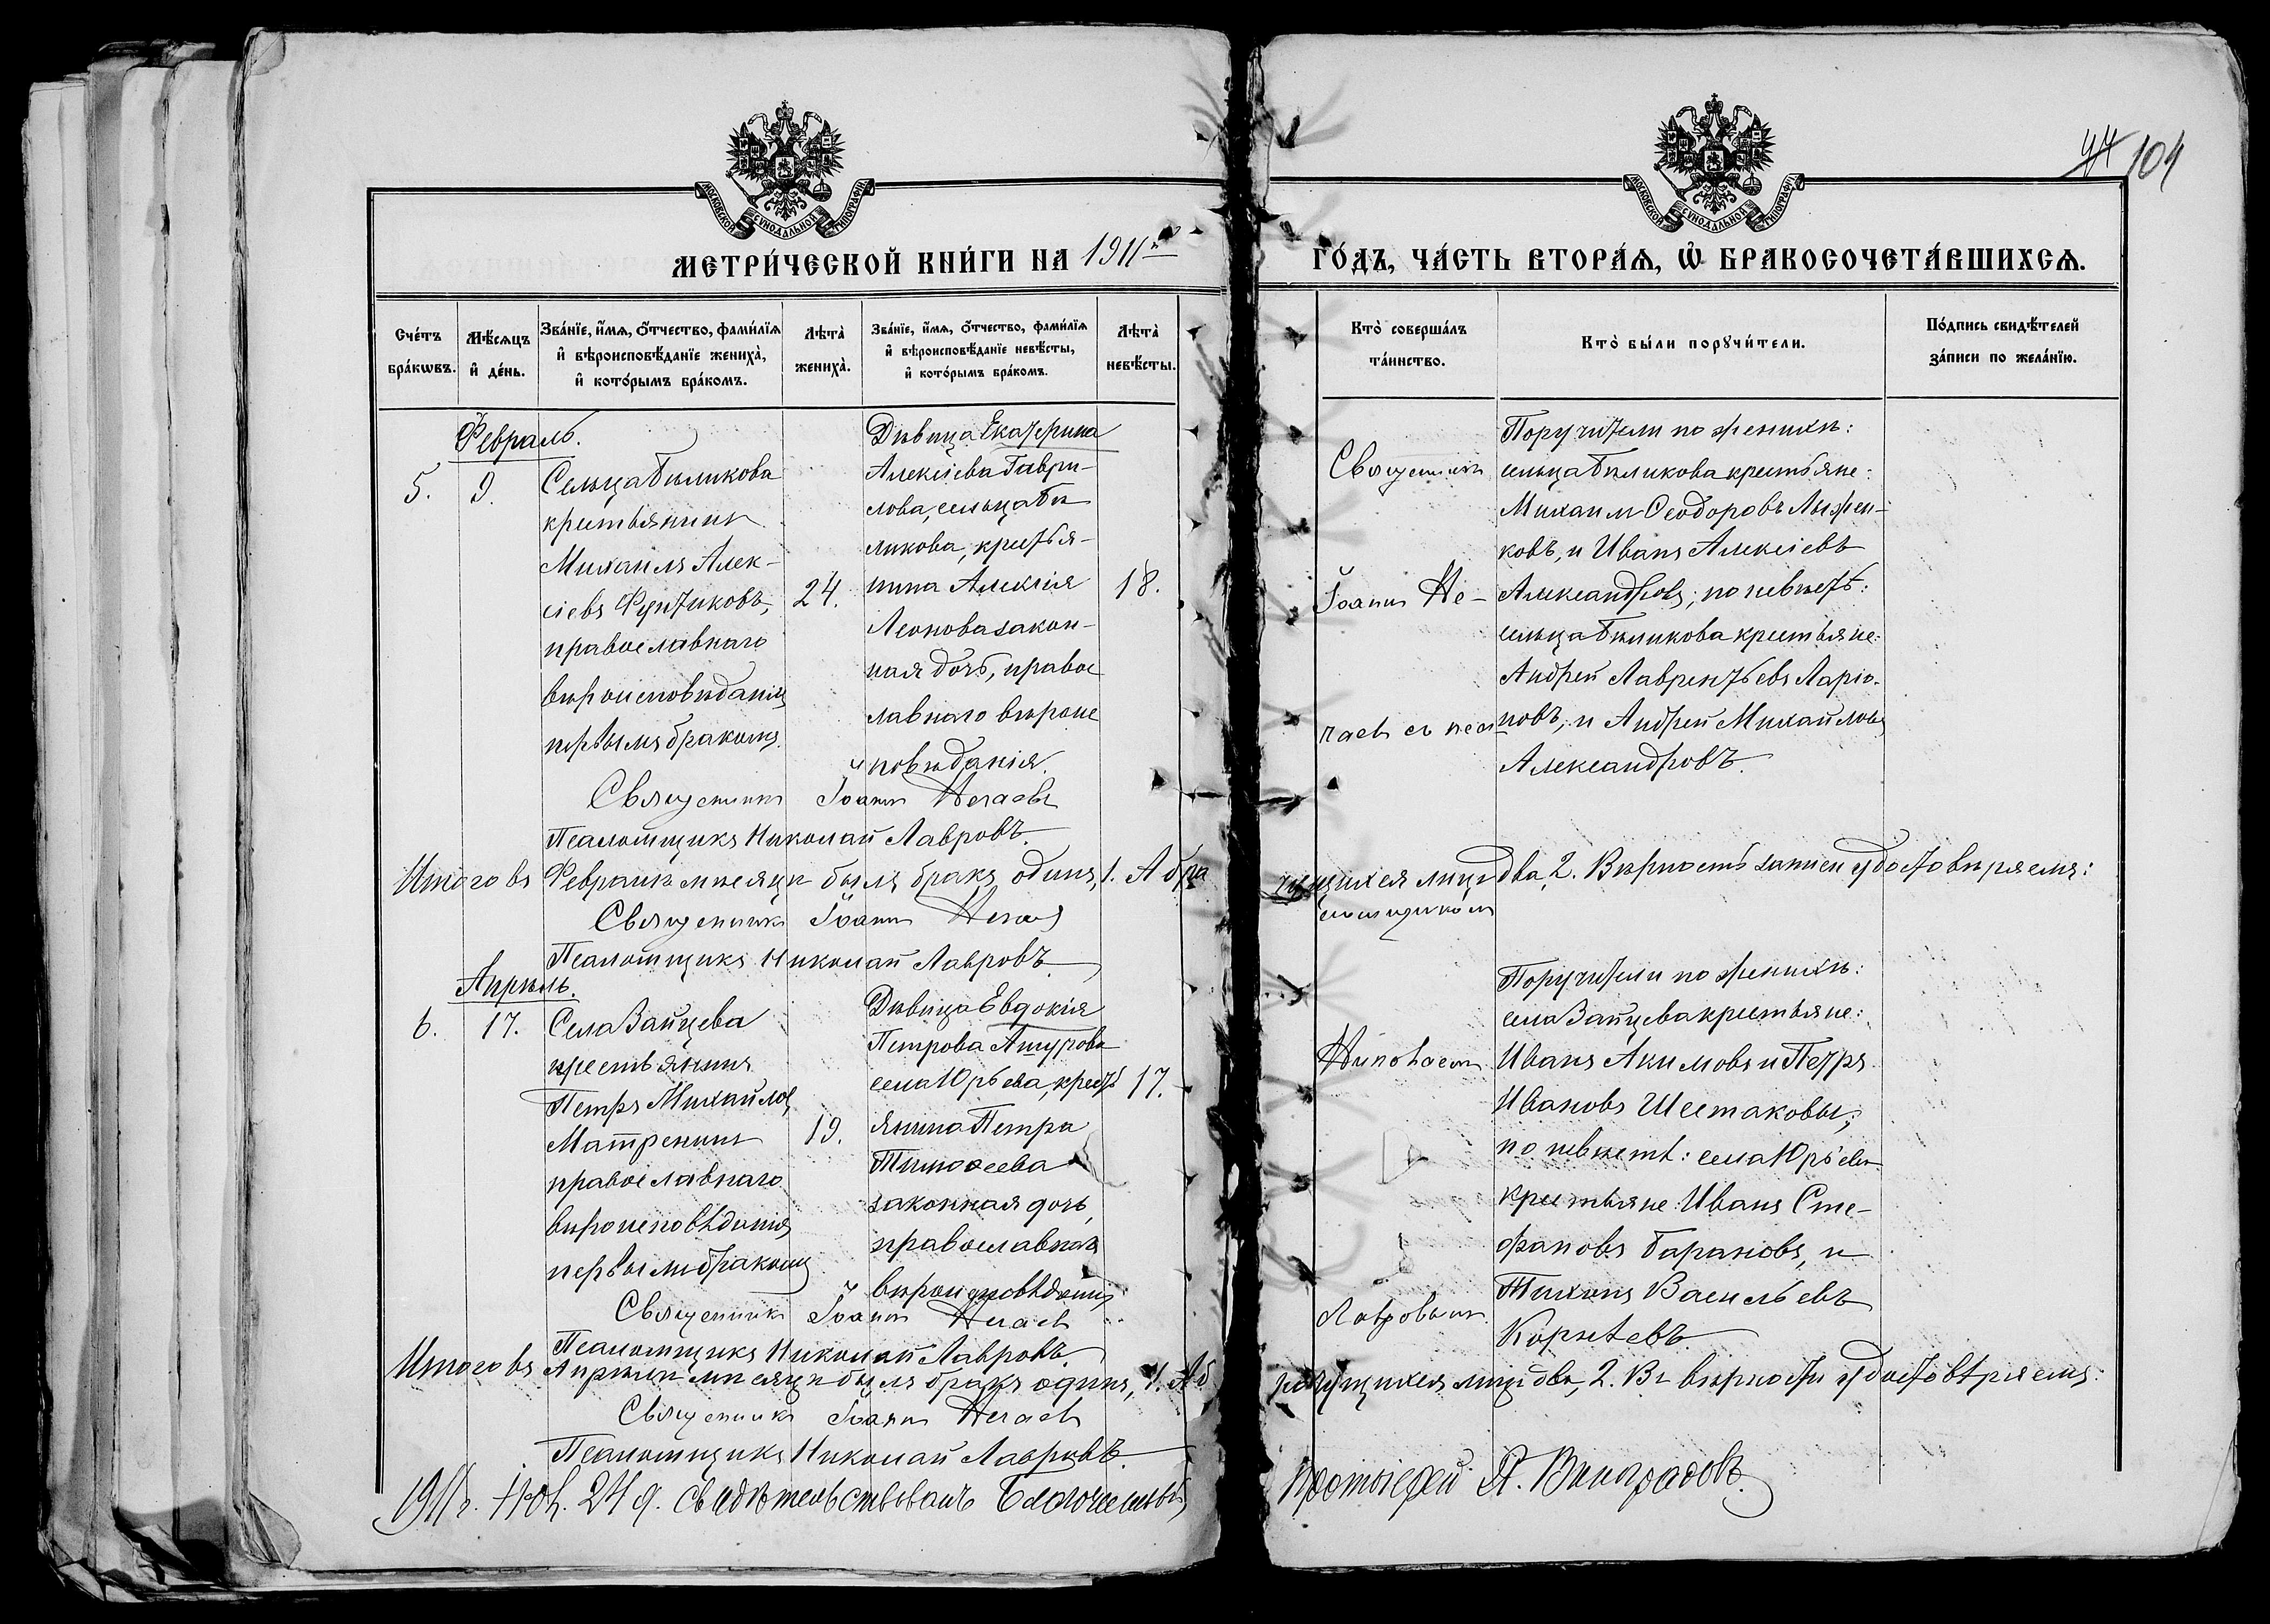 44 104
МОСКОВСКОЙ СѴНОДАЛЬНОЙ ТИПОГРАФІИ
МОСКОВСКОЙ СѴНОДАЛЬНОЙ ТИПОГРАФІИ
МЕТРИ́ЧЕСКОЙ КНИ́ГИ НА 1911й
ГО́ДЪ, ЧА́СТЬ ВТОРА́Ѧ, Ѡ҆ БРАКОСОЧЕТА́ВШИХСѦ.
Сче́тъ бра́кѡвъ.
Мѣ́сяцъ и҆ де́нь.
Зва́нїе, и҆́мѧ, ѻ҆́тчество, фами́лїѧ
и҆ вѣроисповѣ́данїе жениха̀,
и҆ кото́рымъ бра́комъ.
Лѣта̀ жениха̀.
Зва́нїе, и҆́мѧ, ѻ҆́тчество, фами́лїѧ
и҆ вѣроисповѣ́данїе невѣ́сты,
и҆ кото́рымъ бра́комъ.
Лѣта̀ невѣ́сты.
Кто̀ соверша́лъ
та́инство.
Кто̀ бы́ли порꙋчи́тели.
По́дпись свидѣ́телей
за́писи по жела́нїю.
Февраль.
5.
9.
Сельца Быликова
крестьянинъ
Михаилъ Алек-
сіевъ Фунтиковъ,
православнаго
вѣроисповѣданія
первымъ бракомъ.
24.
Дѣвица Екатерина
Алексіева Гаври-
лова, сельца Бы
ликова, крестья-
нина Алексія
Леонова закон-
ная дочь, правос
лавнаго вѣроис
повѣданія.
18.
Священникъ
Іоаннъ Не-
чаевъ съ псал
омщикомъ
Поручители по женихѣ:
сельца Быликова крестьяне:
Михаилъ Ѳеодоровъ Лыжен-
ковъ, и Иванъ Алексіевъ
Александровъ; по невѣстѣ:
сельца Быликова крестьяне:
Андрей Лаврентьевъ Ларіо-
новъ, и Андрей Михайловъ
Александровъ.
Священникъ Іоаннъ Нечаевъ
Псаломщикъ Николай Лавровъ.
Итого въ Февралѣ мѣсяцѣ былъ бракъ одинъ, 1. А бра
чущихся лицъ два, 2. Вѣрность записи удостовѣряемъ:
Священникъ Іоаннъ Нечаевъ
Псаломщикъ Николай Лавровъ.
Апрѣль.
6.
17.
Села Зайцева
крестьянинъ
Петръ Михайловъ
Матренинъ
православнаго
вѣроисповѣданія
первымъ бракомъ
19.
Дѣвица Евдокія
Петрова
села Юрьева, крестъ
янина Петра
Тимоѳеева
законная дочь,
православнаго
вѣроисповѣданія
17.
Николаемъ
Лавровымъ.
Поручители по женихѣ:
села Зайцева крестьяне:
Иванъ Акимовъ и Петръ
Ивановъ Шестаковы;
по невѣстѣ: села Юрьева
крестьяне: Иванъ Сте-
фановъ Барановъ, и
Тихонъ Васильевъ
Корнѣевъ.
Священникъ Іоаннъ Нечаевъ
Псаломщикъ Николай Лавровъ.
Итого въ Апрѣлѣ мѣсяцѣ былъ бракъ одинъ, 1. А б
рачущихся лицъ два, 2. Въ вѣрности удостовѣряемъ:
Священникъ Іоаннъ Нечаевъ
Псаломщикъ Николай Лавровъ.
1911 г. 24 д. свидѣтельствовалъ Благочинный
Протоіерей П. Виноградовъ.